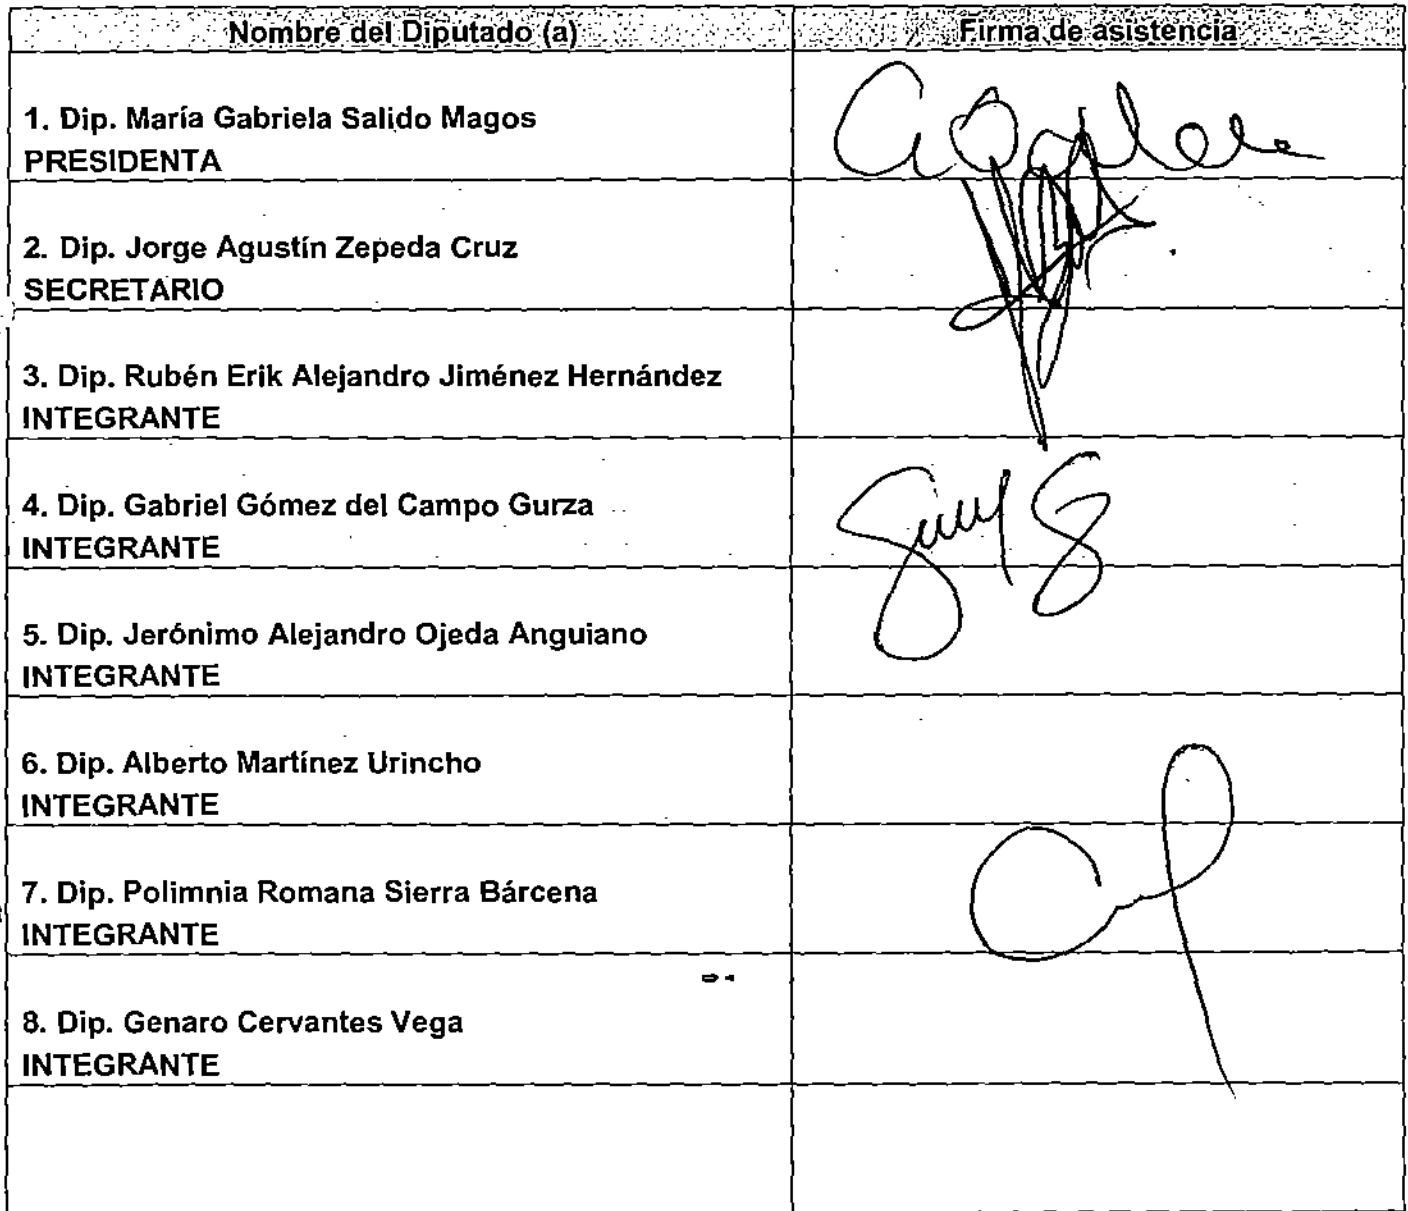 Nombre del Diputado (a)
Firma de asistencia
1. Dip. María Gabriela Salido Magos
PRESIDENTA
2. Dip. Jorge Agustín Zepeda Cruz
SECRETARIO
3. Dip. Rubén Erik Alejandro Jiménez Hernández
INTEGRANTE
4. Dip. Gabriel Gómez del Campo Gurza
INTEGRANTE
5. Dip. Jerónimo Alejandro Ojeda Anguiano
INTEGRANTE
6. Dip. Alberto Martínez Urincho
INTEGRANTE
7. Dip. Polimnia Romana Sierra Bárcena
INTEGRANTE
8. Dip. Genaro Cervantes Vega
INTEGRANTE